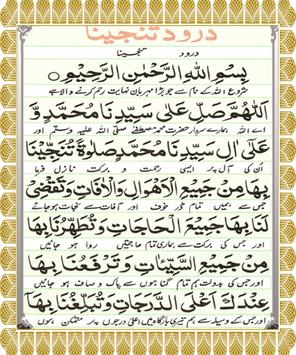 درود تنجینا
درود تنجینا
بِسْمِ اللهِ الرَّحْمٰنِ الرَّحِيْمِ
شروع اللہ کے نام سے جو بڑا مہربان نہایت رحم کرنے والا ہے
اَللّٰهُمَّ صَلِّ عَلٰى سَيِّدِنَا مُحَمَّدٍ وَّ
اے اللہ ہمارے سردار حضرت محمد مصطفےٰ صلی اللہ علیہ وسلم اور
عَلٰٓى اٰلِ سَيِّدِنَا مُحَمَّدٍ صَلٰوةً تُنَجِّيْنَا
ان کی آل پر ایسی رحمت و برکت نازل فرما
بِهَا مِنْ جَمِيْعِ الْاَهْوَالِ وَالْاٰفَاتِ وَتَقْضِىْ
جس سے ہمیں تمام ڈر خوف اور آفات سے نجات ہو جائے
لَنَا بِهَا جَمِيْعَ الْحَاجَاتِ وَتُطَهِّرُنَا بِهَا
اور جس کی برکت سے ہماری تمام حاجتیں روا ہو جائیں
مِنْ جَمِيْعِ السَّيِّاٰتِ وَتَرْفَعُنَا بِهَا
اور جس کی بدولت ہم تمام گناہوں سے پاک و صاف ہو جائیں
عِنْدَكَ اَعْلَى الدَّرَجَاتِ وَتُبَلِّغُنَا بِهَا
اور جس کے وسیلہ سے ہم تیری بارگاہ میں اعلیٰ درجوں پر متمکن ہوں